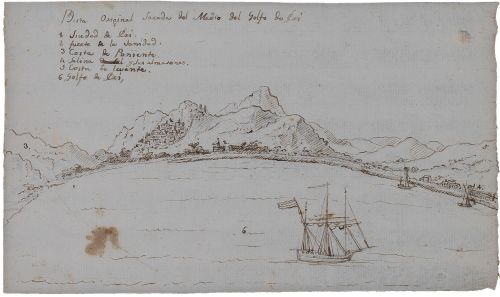 Vista Original Sacada del Medio del Golfo de Cai
1 Siudad de Cai.
2 fuerte de la Sanidad.
3 Costa de Poniente.
4 Salina y sus Almasenes.
5 Costa de Levante.
6 Golfo de Cai,
3.
6